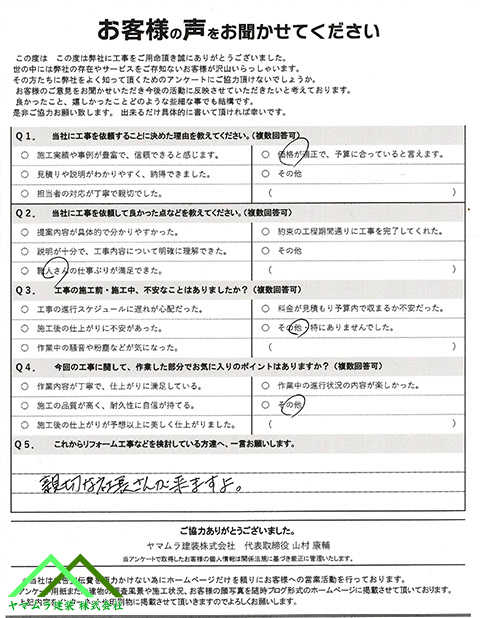 お客様の声をお聞かせてください
この度は　この度は弊社に工事をご用命頂き誠にありがとうございました。
世の中には弊社の存在やサービスをご存知ないお客様が沢山いらっしゃいます。
その方たちに弊社をよく知って頂くためのアンケートにご協力頂けないでしょうか。
お客様のご意見をお聞かせいただき今後の活動に反映させていただきたいと考えております。
良かったこと、嬉しかったことどのような些細な事でも結構です。
是非ご協力お願い致します。出来るだけ具体的に書いて頂ければ幸いです。
Q１．　当社に工事を依頼することに決めた理由を教えてください。(複数回答可)
○　施工実績や事例が豊富で、信頼できると感じます。
○　価格が適正で、予算に合っていると言えます。
○　見積りや説明がわかりやすく、納得できました。
○　その他
○　担当者の対応が丁寧で親切でした。
(　　　)
Q２．　当社に工事を依頼して良かった点などを教えてください。(複数回答可)
○　提案内容が具体的で分かりやすかった。
○　約束の工程期間通りに工事を完了してくれた。
○　説明が十分で、工事内容について明確に理解できた。
○　その他
○　職人さんの仕事ぶりが満足できた。
(　　　)
Q３．　工事の施工前・施工中、不安なことはありましたか？(複数回答可)
○　工事の進行スケジュールに遅れが心配だった。
○　料金が見積もり予算内で収まるか不安だった。
○　施工後の仕上がりに不安があった。
○　その他・特にありませんでした。
○　作業中の騒音や粉塵などが気になった。
(　　　)
Q４．　今回の工事に関して、作業した部分でお気に入りのポイントはありますか？(複数回答可)
○　作業内容が丁寧で、仕上がりに満足している。
○　作業中の進行状況の内容が楽しかった。
○　施工の品質が高く、耐久性に自信が持てる。
○　その他
○　施工後の仕上がりが予想以上に美しく仕上がりました。
(　　　)
Q５．　これからリフォーム工事などを検討している方達へ、一言お願いします。
親切な社長さんが来ますよ。
ご協力ありがとうございました。
ヤマムラ建装株式会社　代表取締役 山村 康輔
当アンケートで取得したお客様の個人情報は関係法規に基づき厳正に管理いたします。
当社は 宣伝費を 力かけない為にホームページだけを頼りにお客様への営業活動を行っております。
アンケート用紙また 建物の 風景や施工状況、お客様の顔写真を随時ブログ形式のホームページに掲載させて頂いております。
ヤマムラ建装 株式会社
上記内容を 印刷物に掲載させて頂いますのでよろしくお願いします。